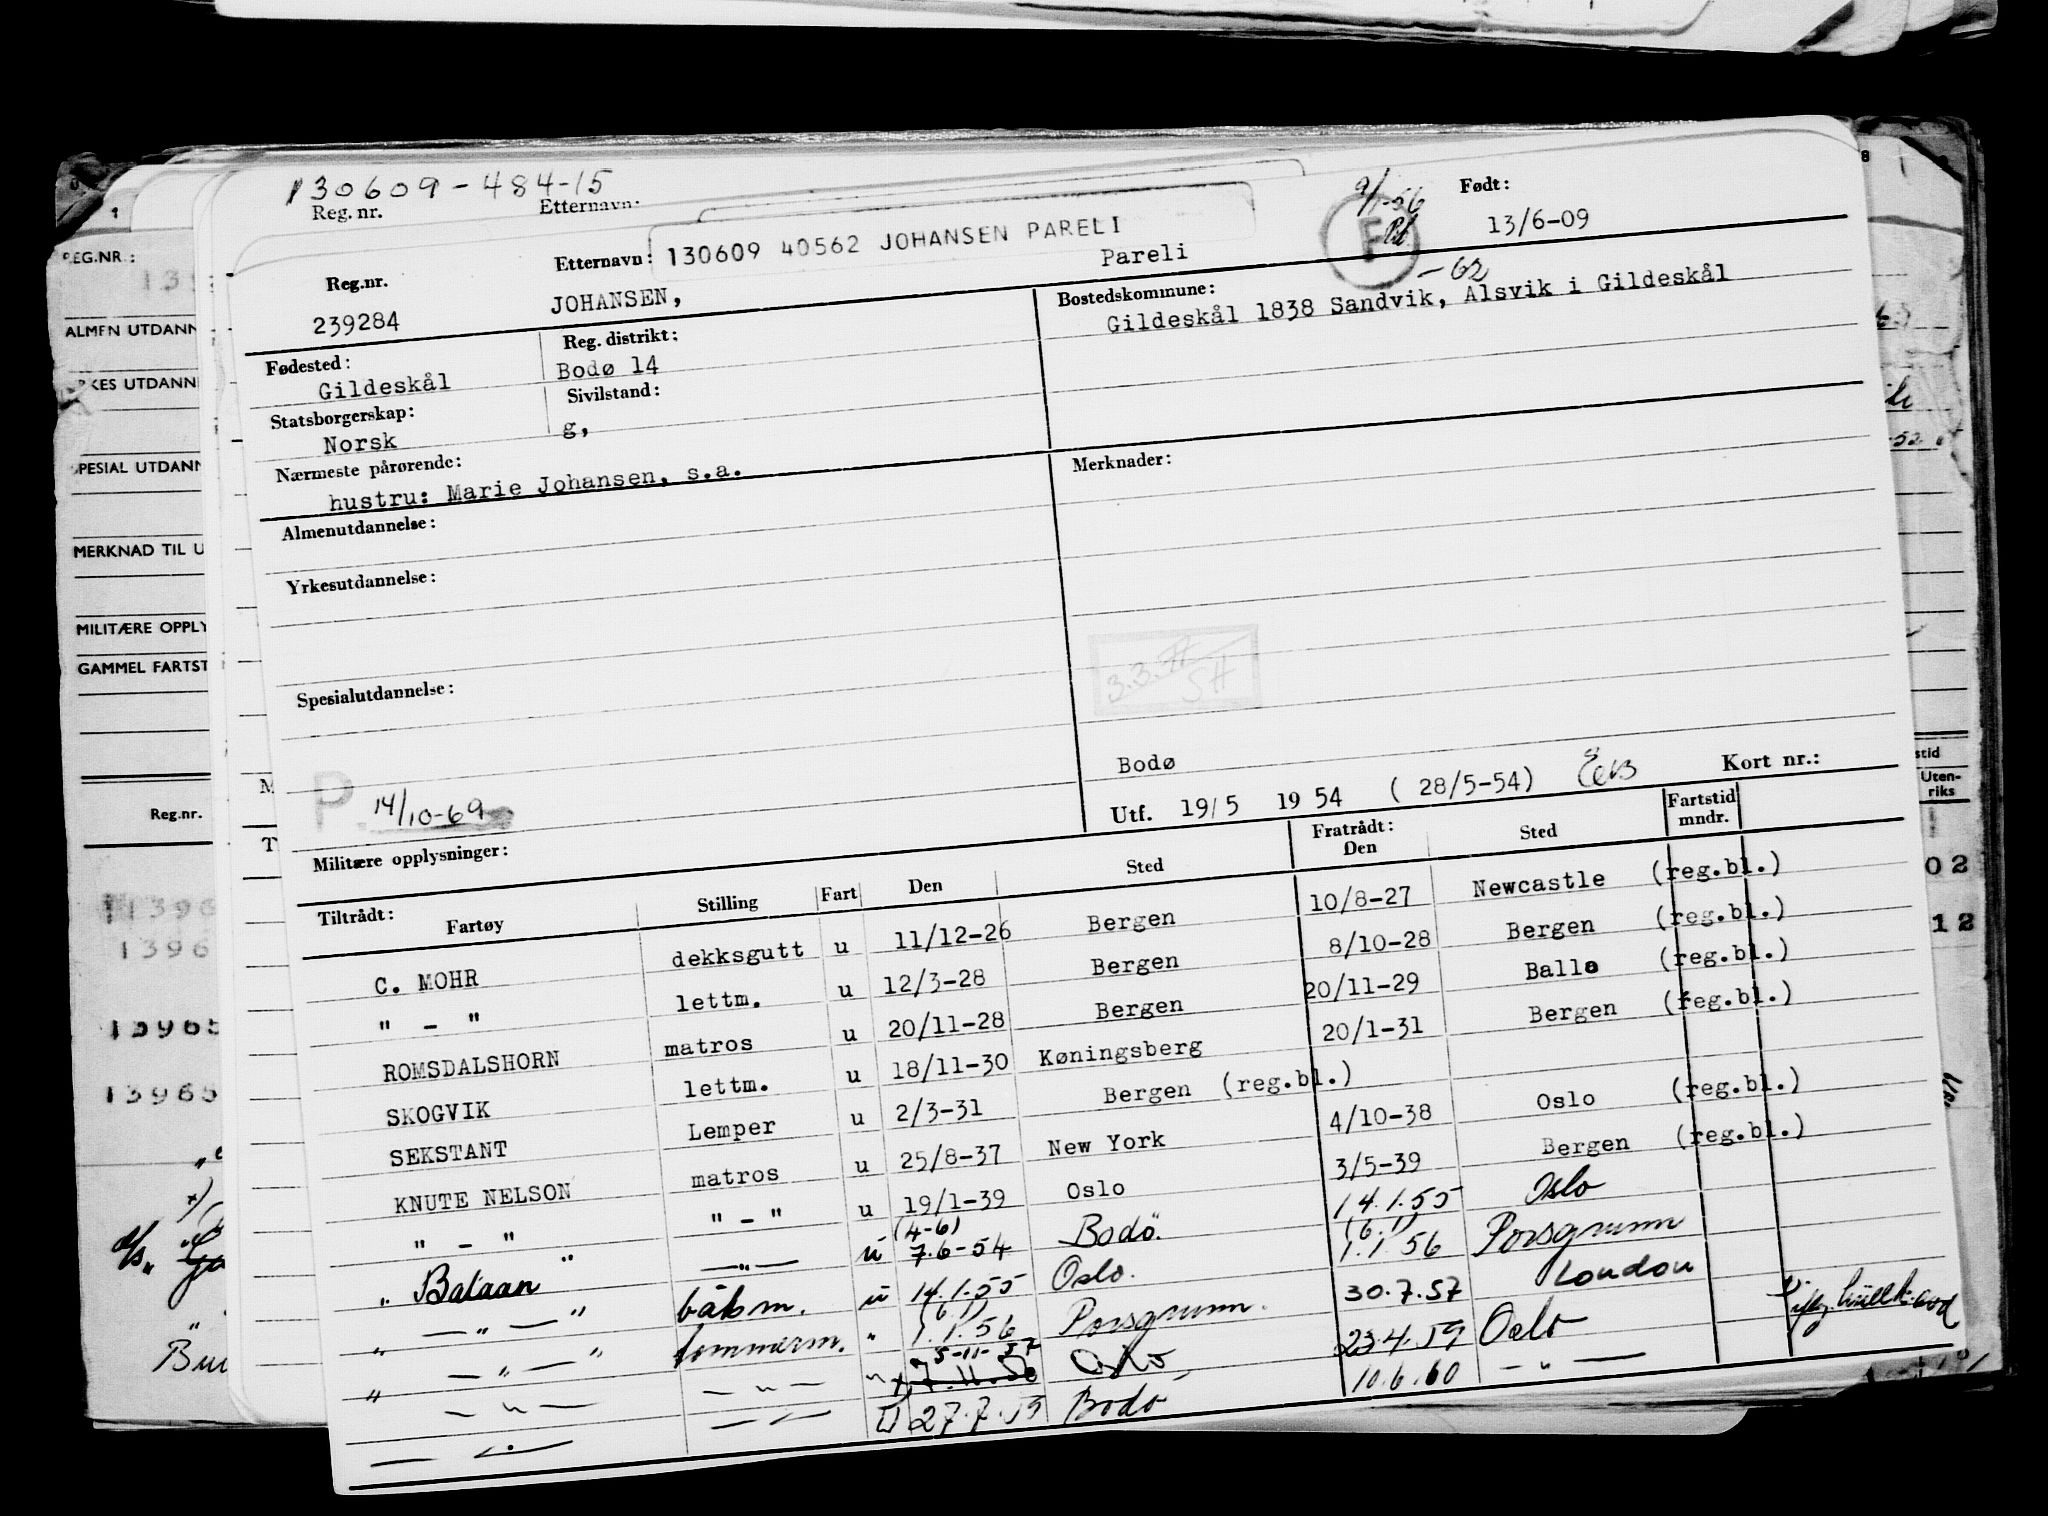 130609-484-15
Reg. nr. Etternavn:
130609 40562 JOHANSEN PARELI
9/1-56
F
Født:
13/6-09
Reg.nr. Etternavn:
239284 JOHANSEN, Pareli
Fødested: Gildeskål
Reg. distrikt: Bodø 14
Bostedskommune: -62
Gildeskål 1838 Sandvik, Alsvik i Gildeskål
Statsborgerskap: Norsk
Sivilstand: g,
Nærmeste pårørende:
hustru: Marie Johansen, s.a.
Merknader:
Almenutdannelse:
Yrkesutdannelse:
3.3.
SH
Spesialutdannelse:
P. 14/10-69
Bodø
Utf. 19/5 1954 ( 28/5-54) Kort nr.:
Militære opplysninger:
Tiltrådt: Fratrådt: Fartstid
Fartøy Stilling Fart Den Sted Den Sted mndr.
C. MOHR dekksgutt u 11/12-26 Bergen 10/8-27 Newcastle (reg.bl.)
" - " lettm. u 12/3-28 Bergen 8/10-28 Bergen (reg.bl.)
ROMSDALSHORN matros u 20/11-28 Bergen 20/11-29 Ballo (reg.bl.)
SKOGVIK lettm. u 18/11-30 Køningsberg 20/1-31 Bergen (reg.bl.)
SEKSTANT Lemper u 2/3-31 Bergen (reg.bl.)
KNUTE NELSON matros u 25/8-37 New York 4/10-38 Oslo (reg.bl.)
" - " " - " u 19/1-39 Oslo 3/5-39 Bergen (reg.bl.)
" Bataan " — " — u (4-6) 7.6-54 Bodö. 14.1.55 Oslo
" — " — " båtsm. u 14.1.55 Oslo. (6.1) 1.1.56 Porsgrunn
" — " — " tømmerm. " (6.1) 1.1.56 Porsgrunn. 30.7.57 London
" — " — — " — " x) 7.11.58 5-11-57 Oslo, 23.4.59 Oslo
— " — — " — U 27.7.59 Bodø 10.6.60 — " —
REG.NR.:
ALMEN UTDANN
RKES UTDANN
SPESIAL UTDANN
MERKNAD TIL U
MILITÆRE OPPLY
GAMMEL FARTST
Reg.nr.
1396
1396
13965
13965
stid
Uten-
riks
02
12